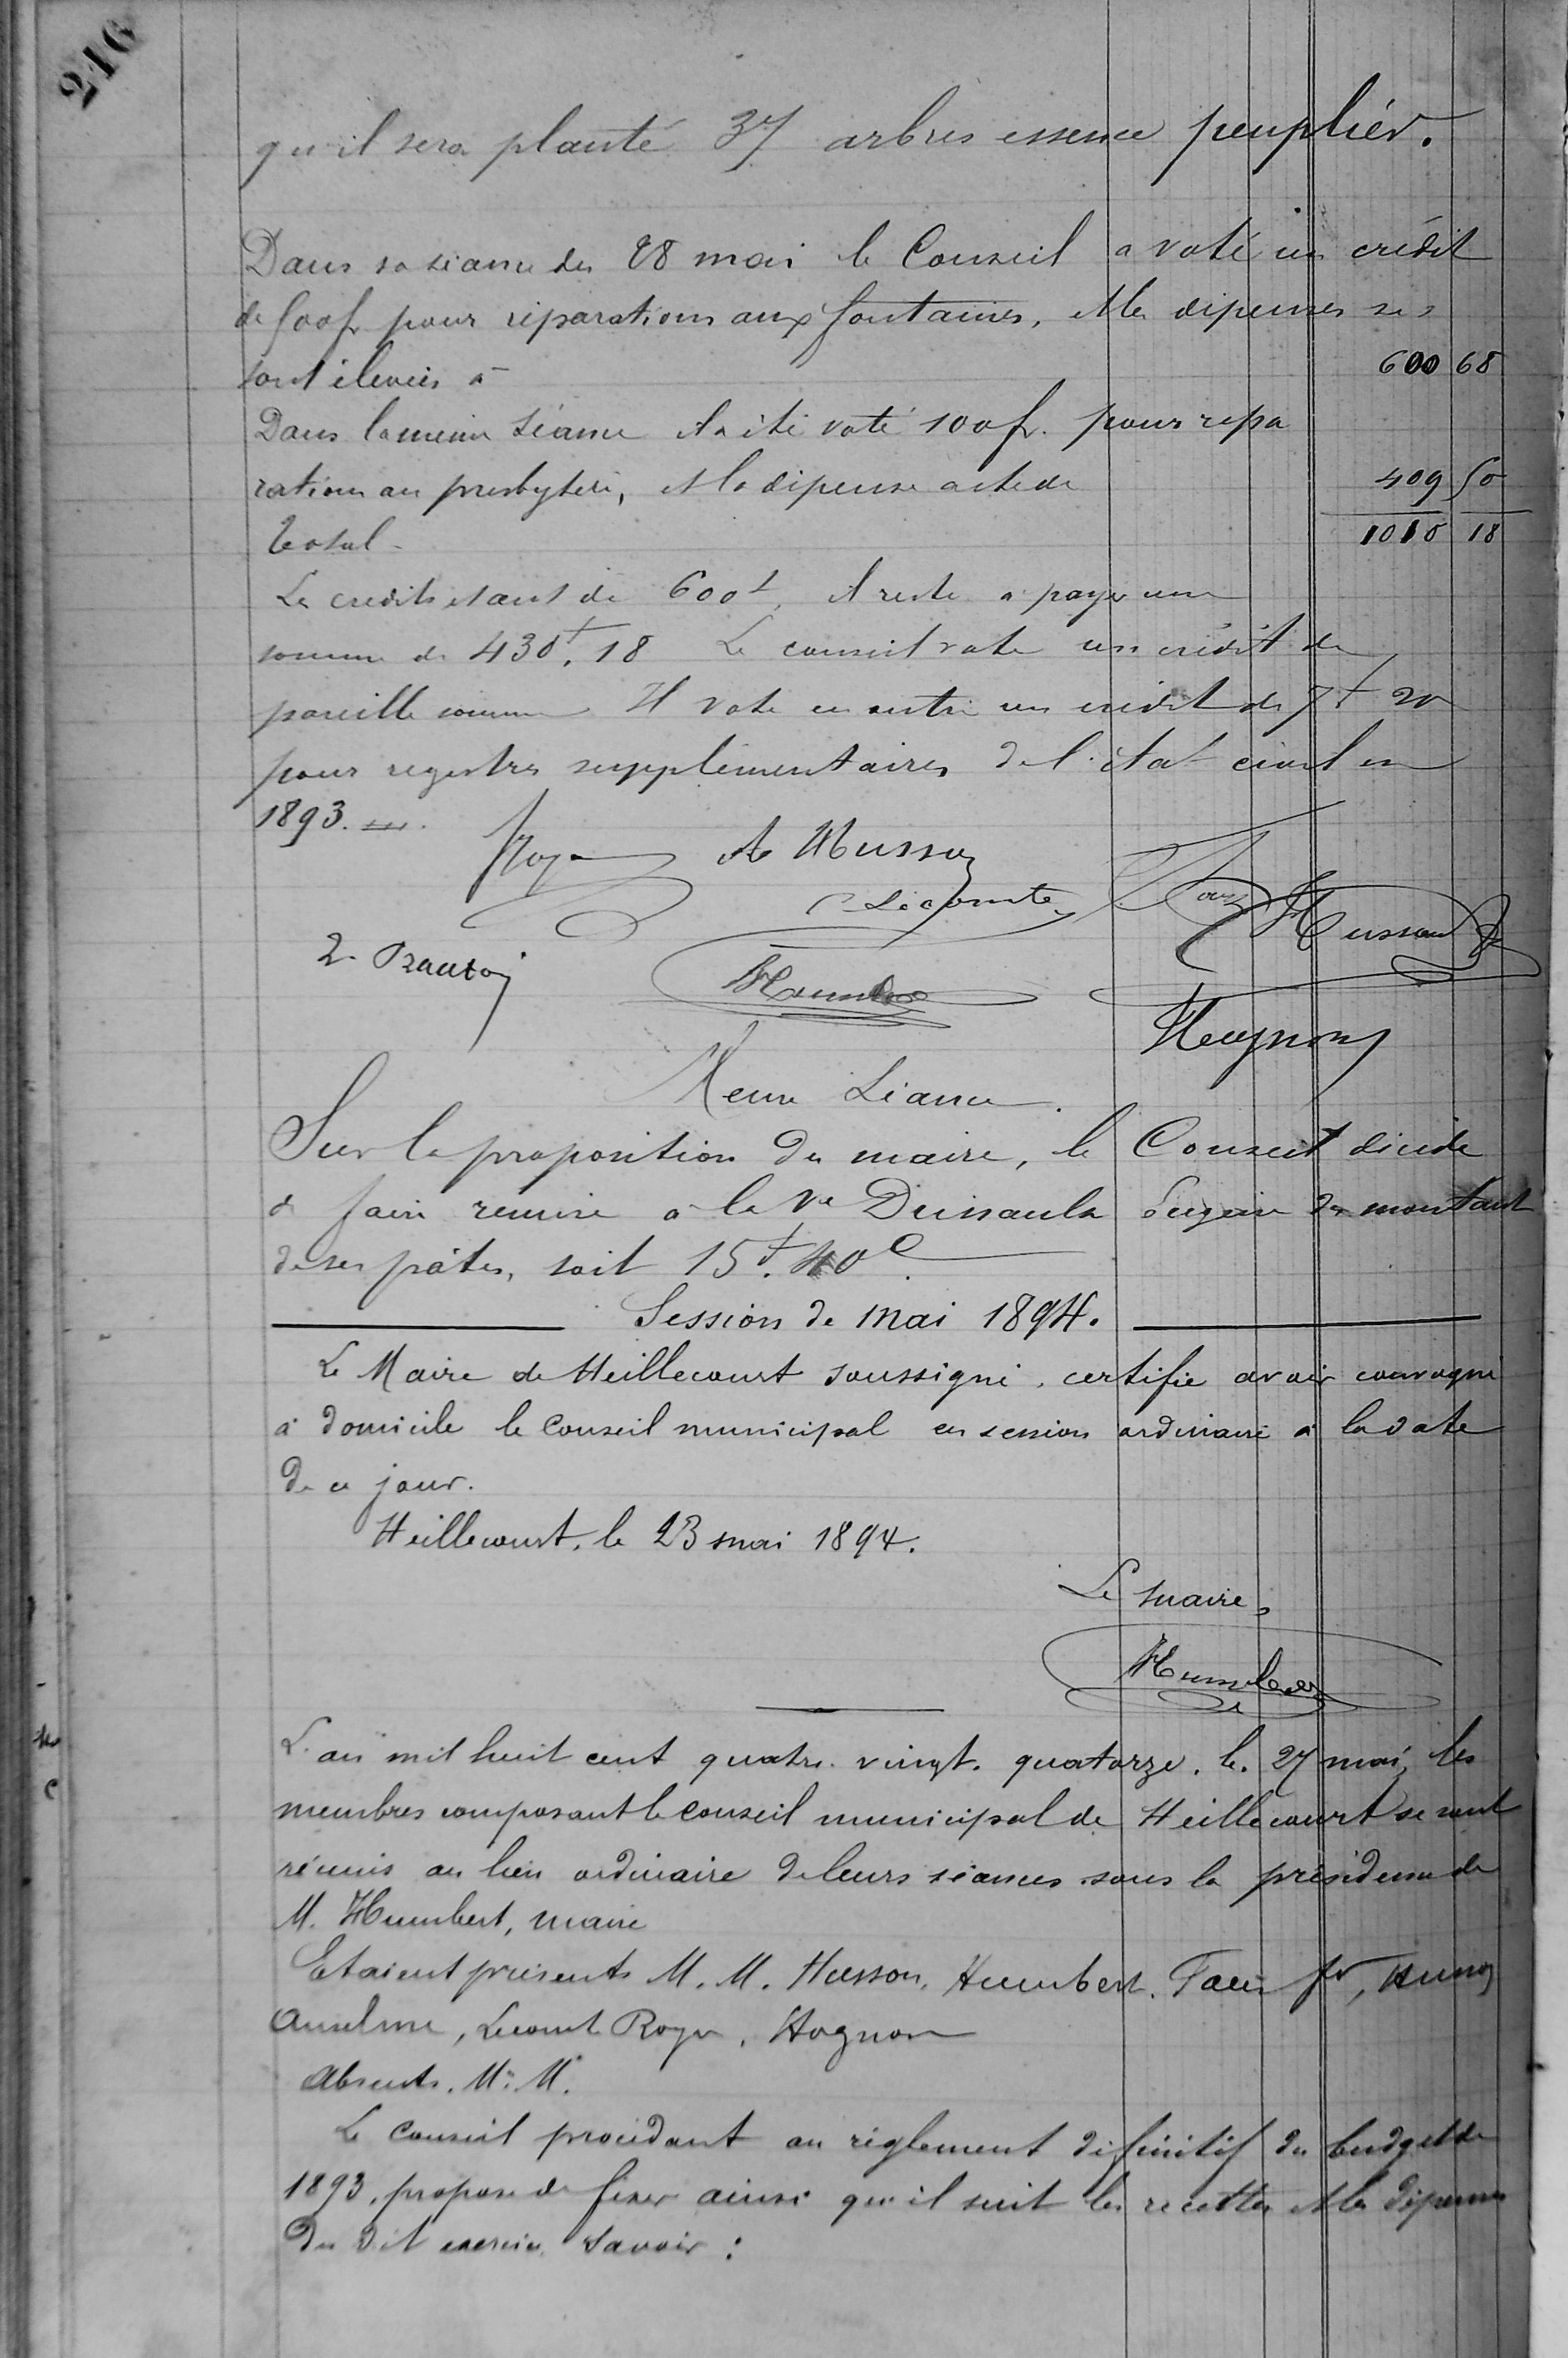 216
qu'il sera planté 37 arbres essence peuplier.
Dans sa séance du 28 mai le Conseil a voté un crédit
de 500f pour réparations aux fontaines, et les dépenses se
sont élevées à 600 68
Dans la même séance il a été voté 100f. pour répa
rations au presbytère, et la dépense a été de 409 50
Total 1010 18
Le crédit étant de 600f, il reste à payer une
somme de 430f,18 Le conseil vote un crédit de
pareille somme Il vote en outre un crédit de 7f 20
pour registres supplémentaires de l'état civil en
1893.
Roger A Husson
C Lecomte
Husson
Humbert
Hognon
Même Séance.
Sur la proposition du maire, le Conseil décide
de faire remise à la Ve Eugénie du montant
de ses pâtes, soit 15f.40c
Session de Mai 1894.
Le Maire de Heillecourt soussigné, certifie avoir convoqué
à domicile le Conseil municipal en session ordinaire à la date
de ce jour.
Heillecourt, le 23 mai 1894.
Le maire,
Humbert
L'an mil huit cent quatre-vingt-quatorze, le 27 mai, les
membres composant le Conseil municipal de Heillecourt se sont
réunis au lieu ordinaire de leurs séances sous la présidence de
M. Humbert, maire
Etaient présents M. M. Husson, Humbert, Husson
Anselme, Lecomte Roger, Hognon
Absents. M. M.
Le Conseil procédant au règlement définitif du budget de
1893, propose de fixer ainsi qu'il suit les recettes et les dépenses
du dit exercice savoir :